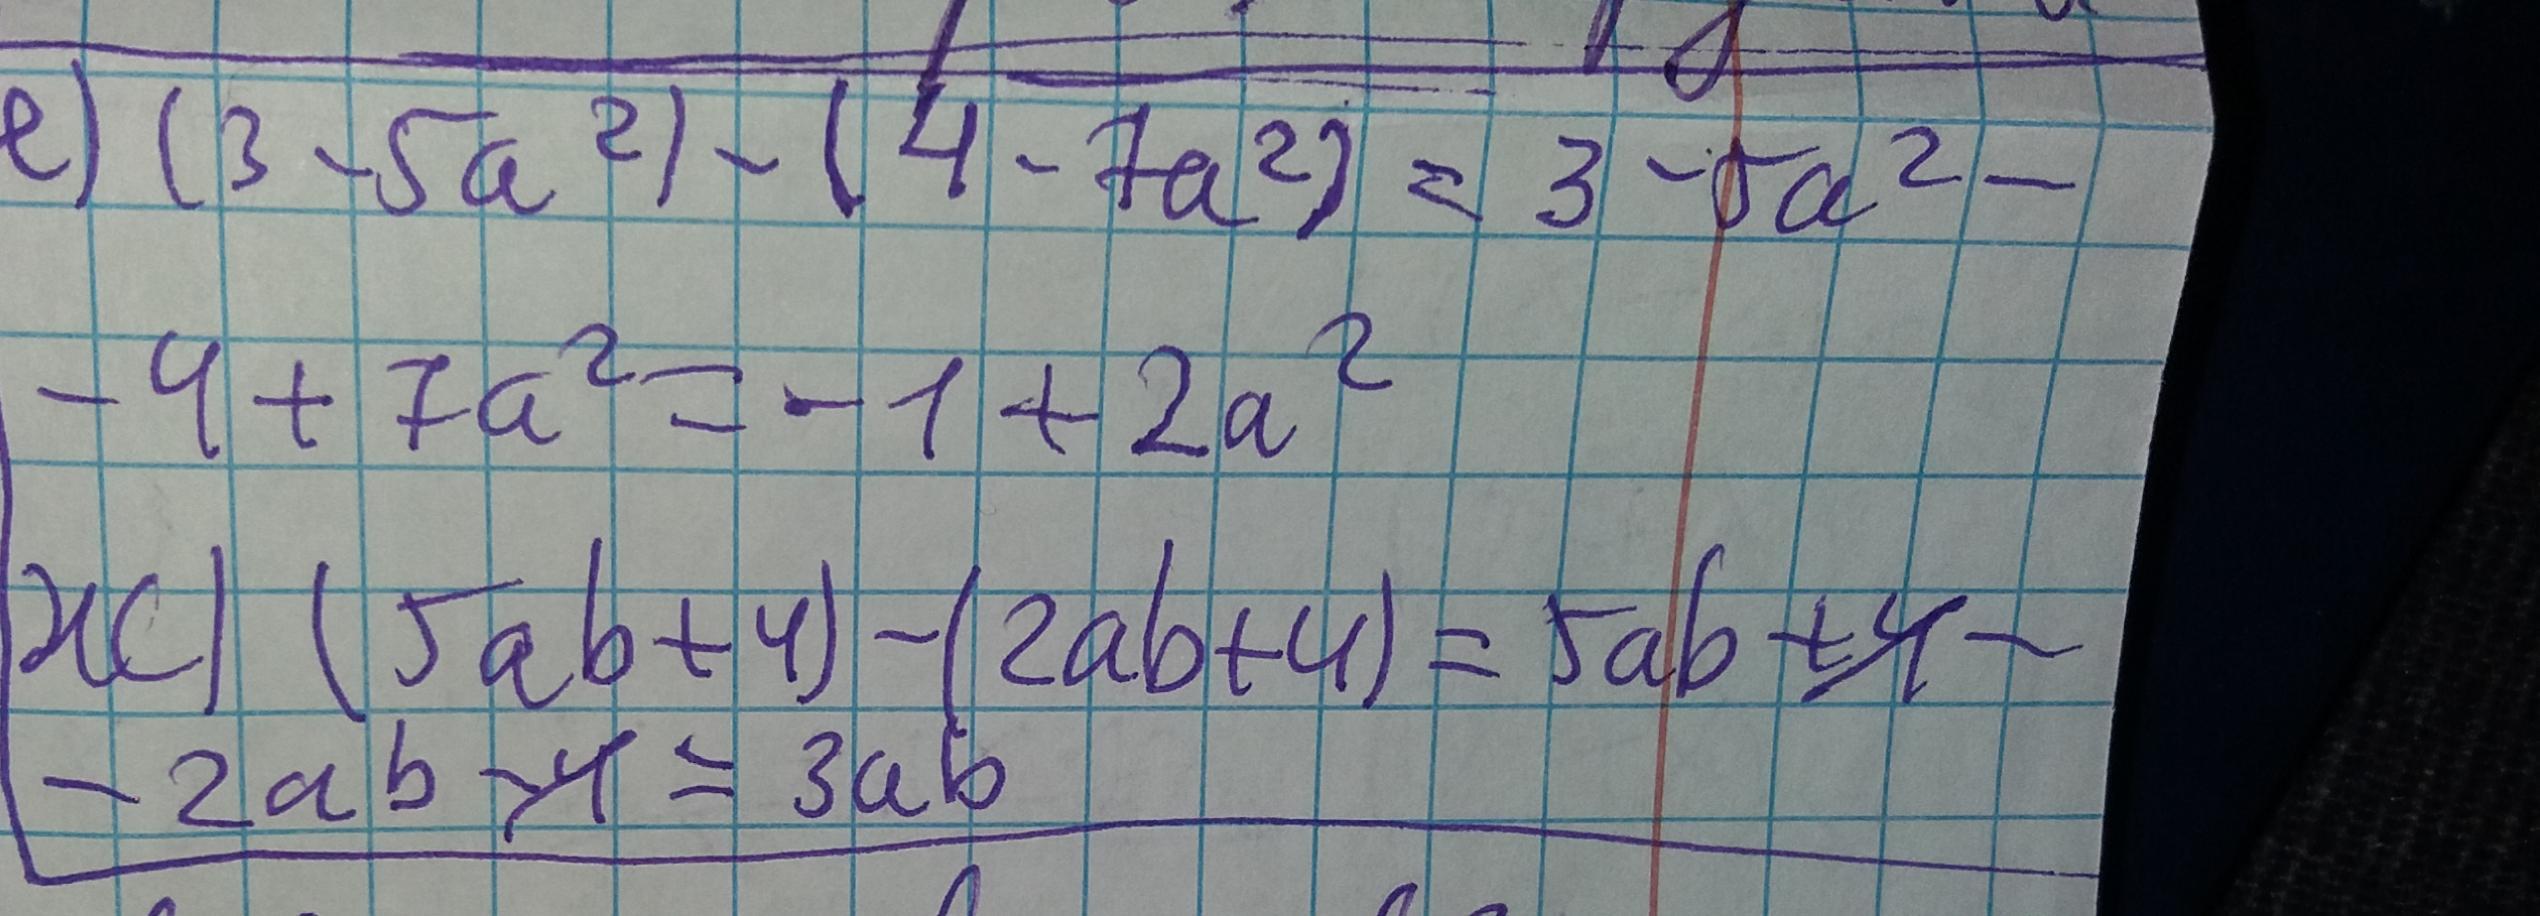 е) (3 - 5a²) - (4 - 7a²) = 3 - 5a² -
- 4 + 7a² = - 1 + 2a²
ж) (5ab + 4) - (2ab + 4) = 5ab + 4 -
- 2ab - 4 = 3ab